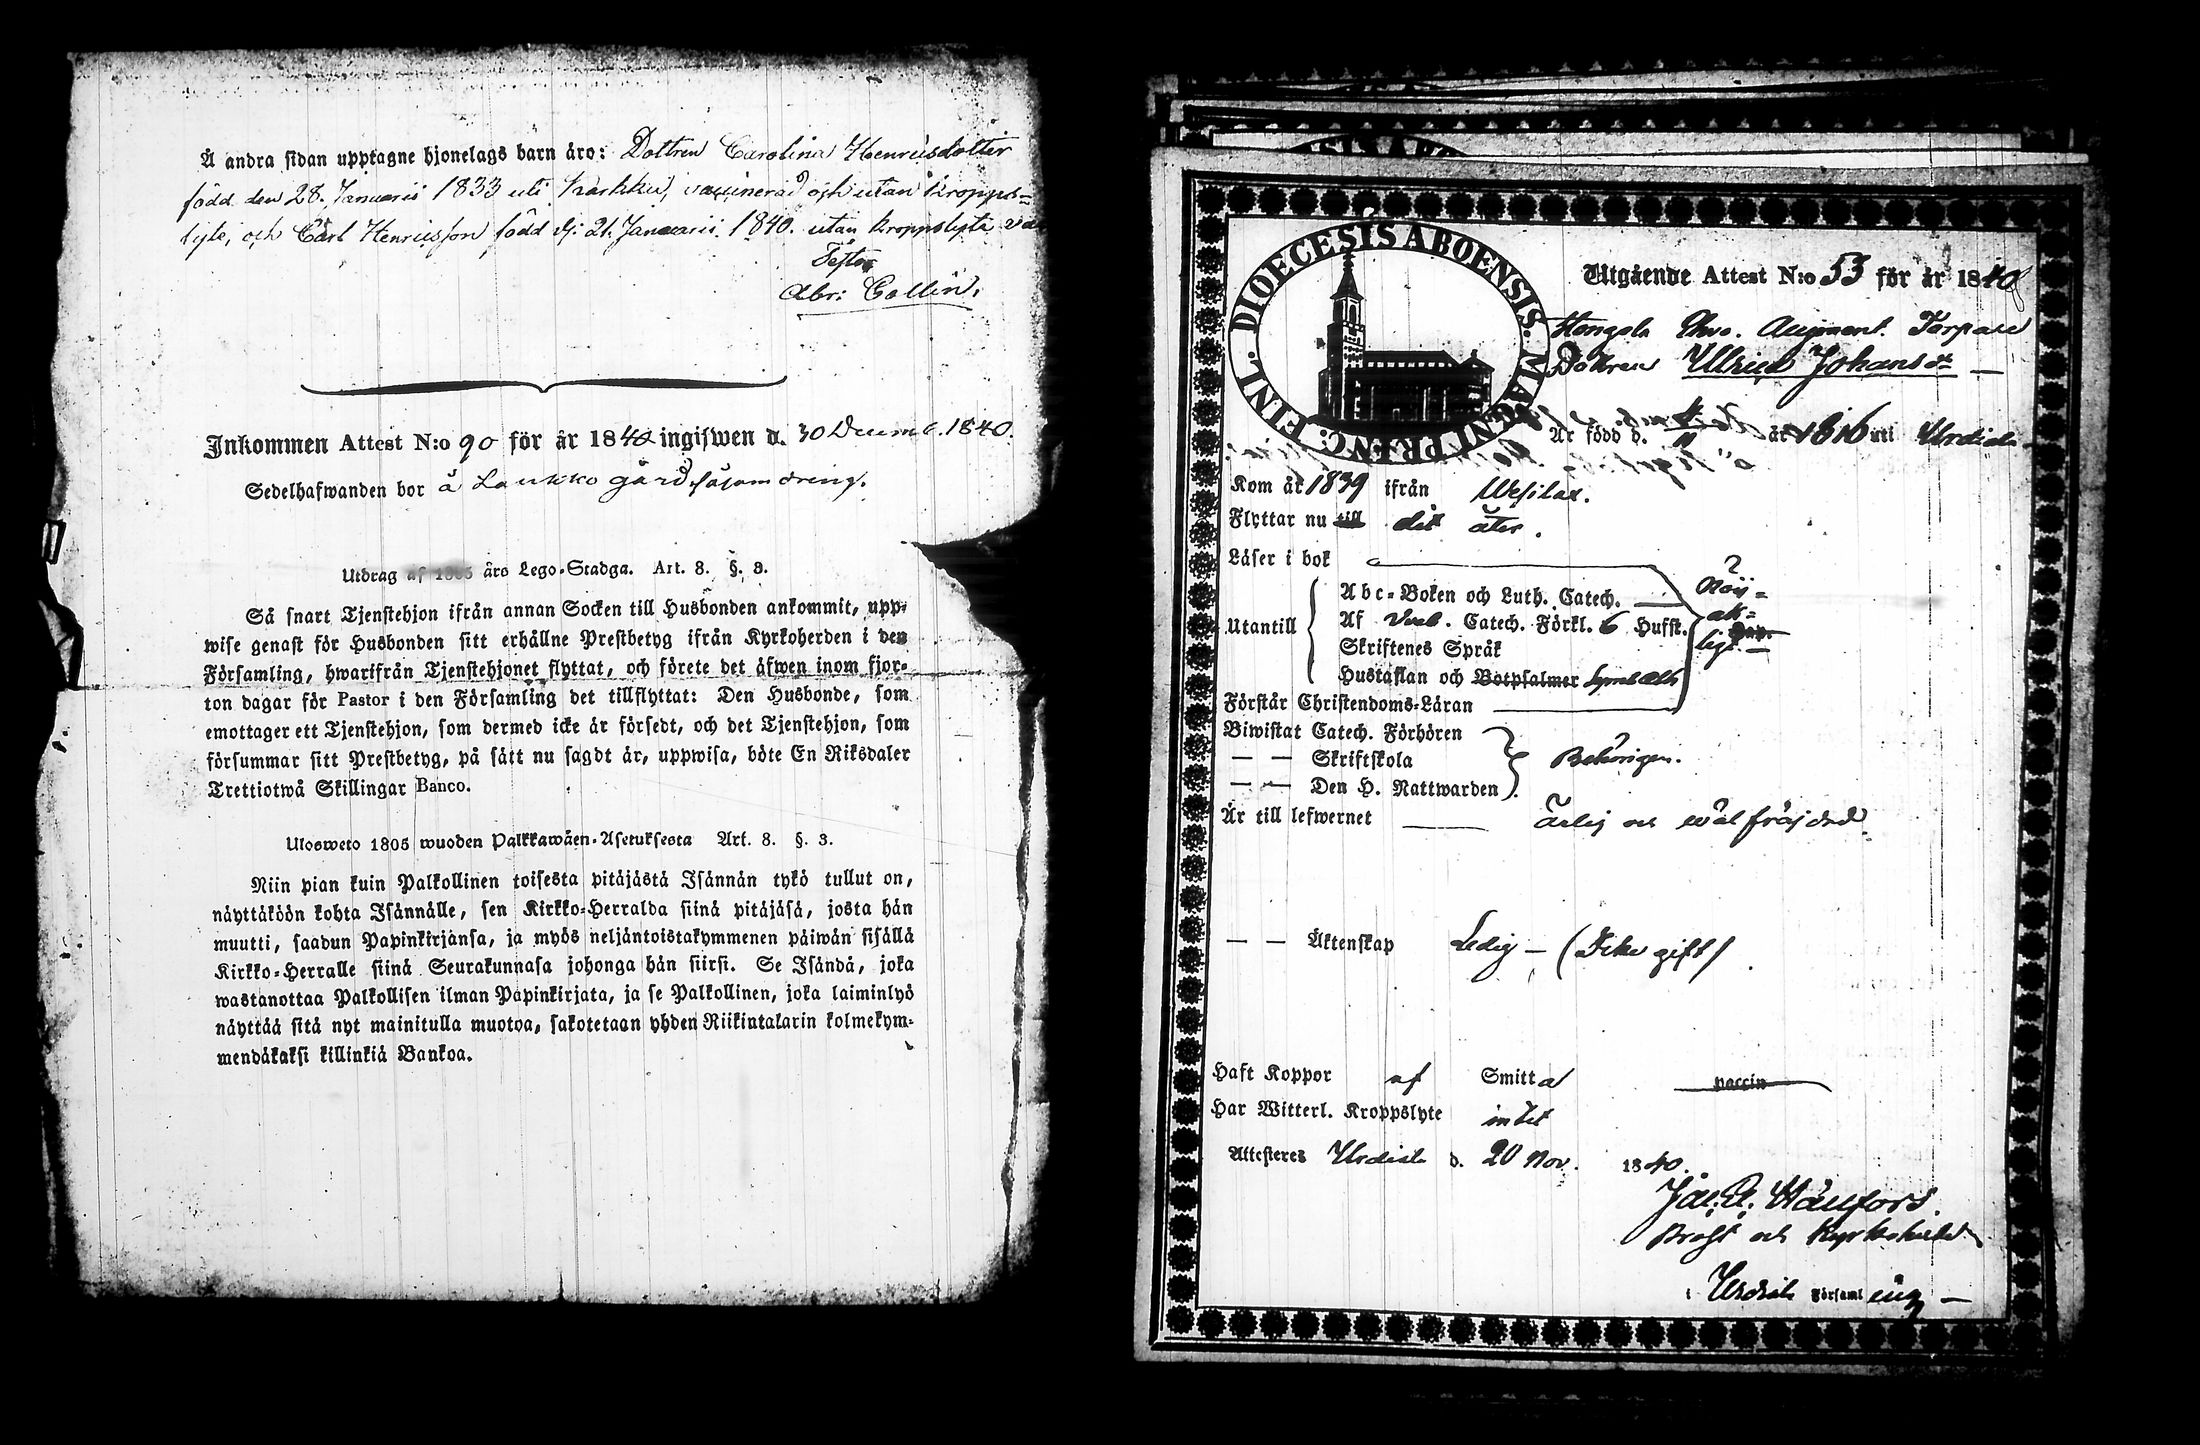 Å andra sidan upptagne hjonelags barn äro: Dottren Carolina Henricsdotter
född den 28. Januarii 1833 uti Karkku, vaccinerad och utan kropps-
lyte, och Carl Henricsson född d: 21. Januarii 1840. utan kroppslyte
Testor
Abr: Collin.
Inkommen Attest N:o 90 för år 1840 ingifwen d. 30 Decemb. 1840.
Sedelhafwanden bor å Laukko gård
Utdrag af 1805 års Lego-Stadga. Art. 8. §. 3.
Så snart Tjenstehjon ifrån annan Socken till Husbonden ankommit, upp-
wise genast för Husbonden sitt erhållne Prestbetyg ifrån Kyrkoherden i den
Församling, hwarifrån Tjenstehjonet flyttat, och förete det äfwen inom fjor-
ton dagar för Pastor i den Församling det tillflyttat: Den Husbonde, som
emottager ett Tjenstehjon, som dermed icke är försedt, och det Tjenstehjon, som
försummar sitt Prestbetyg, på sätt nu sagdt är, uppwisa, böte En Riksdaler
Trettiotwå Skillingar Banco.
Ulosweto 1805 wuoden Palkkawäen-Asetuksesta Art. 8. §. 3.
Niin pian kuin Palkollinen toisesta pitäjästä Isännän tykö tullut on,
näyttäköön kohta Isännälle, sen Kirkko-Herralda siinä pitäjäsä, josta hän
muutti, saadun Papinkirjansa, ja myös neljäntoistakymmenen päiwän sisällä
Kirkko-Herralle siinä Seurakunnasa johonga hän siirsi. Se Isändä, joka
wastanottaa Palkollisen ilman Papinkirjata, ja se Palkollinen, joka laiminlyö
näyttää sitä nyt mainitulla muotoa, sakotetaan yhden Riikintalarin kolmekym-
mendäkaksi killinkiä Bankoa.
DIOECESIS ABOENSIS. MAGNI PRINC: FINL.
Utgående Attest N:o 53 för år 1840
Augment. Torpare
Dottren Ulrica Johansdr
Är född d. 4/11 år 1816 uti Urdiala
Kom år 1839 ifrån Wesilax.
Flyttar nu till dit åter.
Läser i bok
Utantill
Abc-Boken och Luth. Catech.
Af Catech. Förkl. 6 Hufst.
Skriftenes Språk
Hustaflan och Botpsalmer Symb. Ath.
Nöij-
ak-
ligt.
Förstår Christendoms-Läran
Biwistat Catech. Förhören
— — Skriftskola
— — Den H. Nattwarden
Behörigen.
Är till lefwernet ärlig och wälfräjdad.
— — Äktenskap Ledig — (Icke gift)
Haft Koppor af Smitta vaccin
Har Witterl. Kroppslyte intet
Attesteres Urdiala d. 20 Nov. 1840.
Prost och Kyrkoherde
i Urdiala Församling —